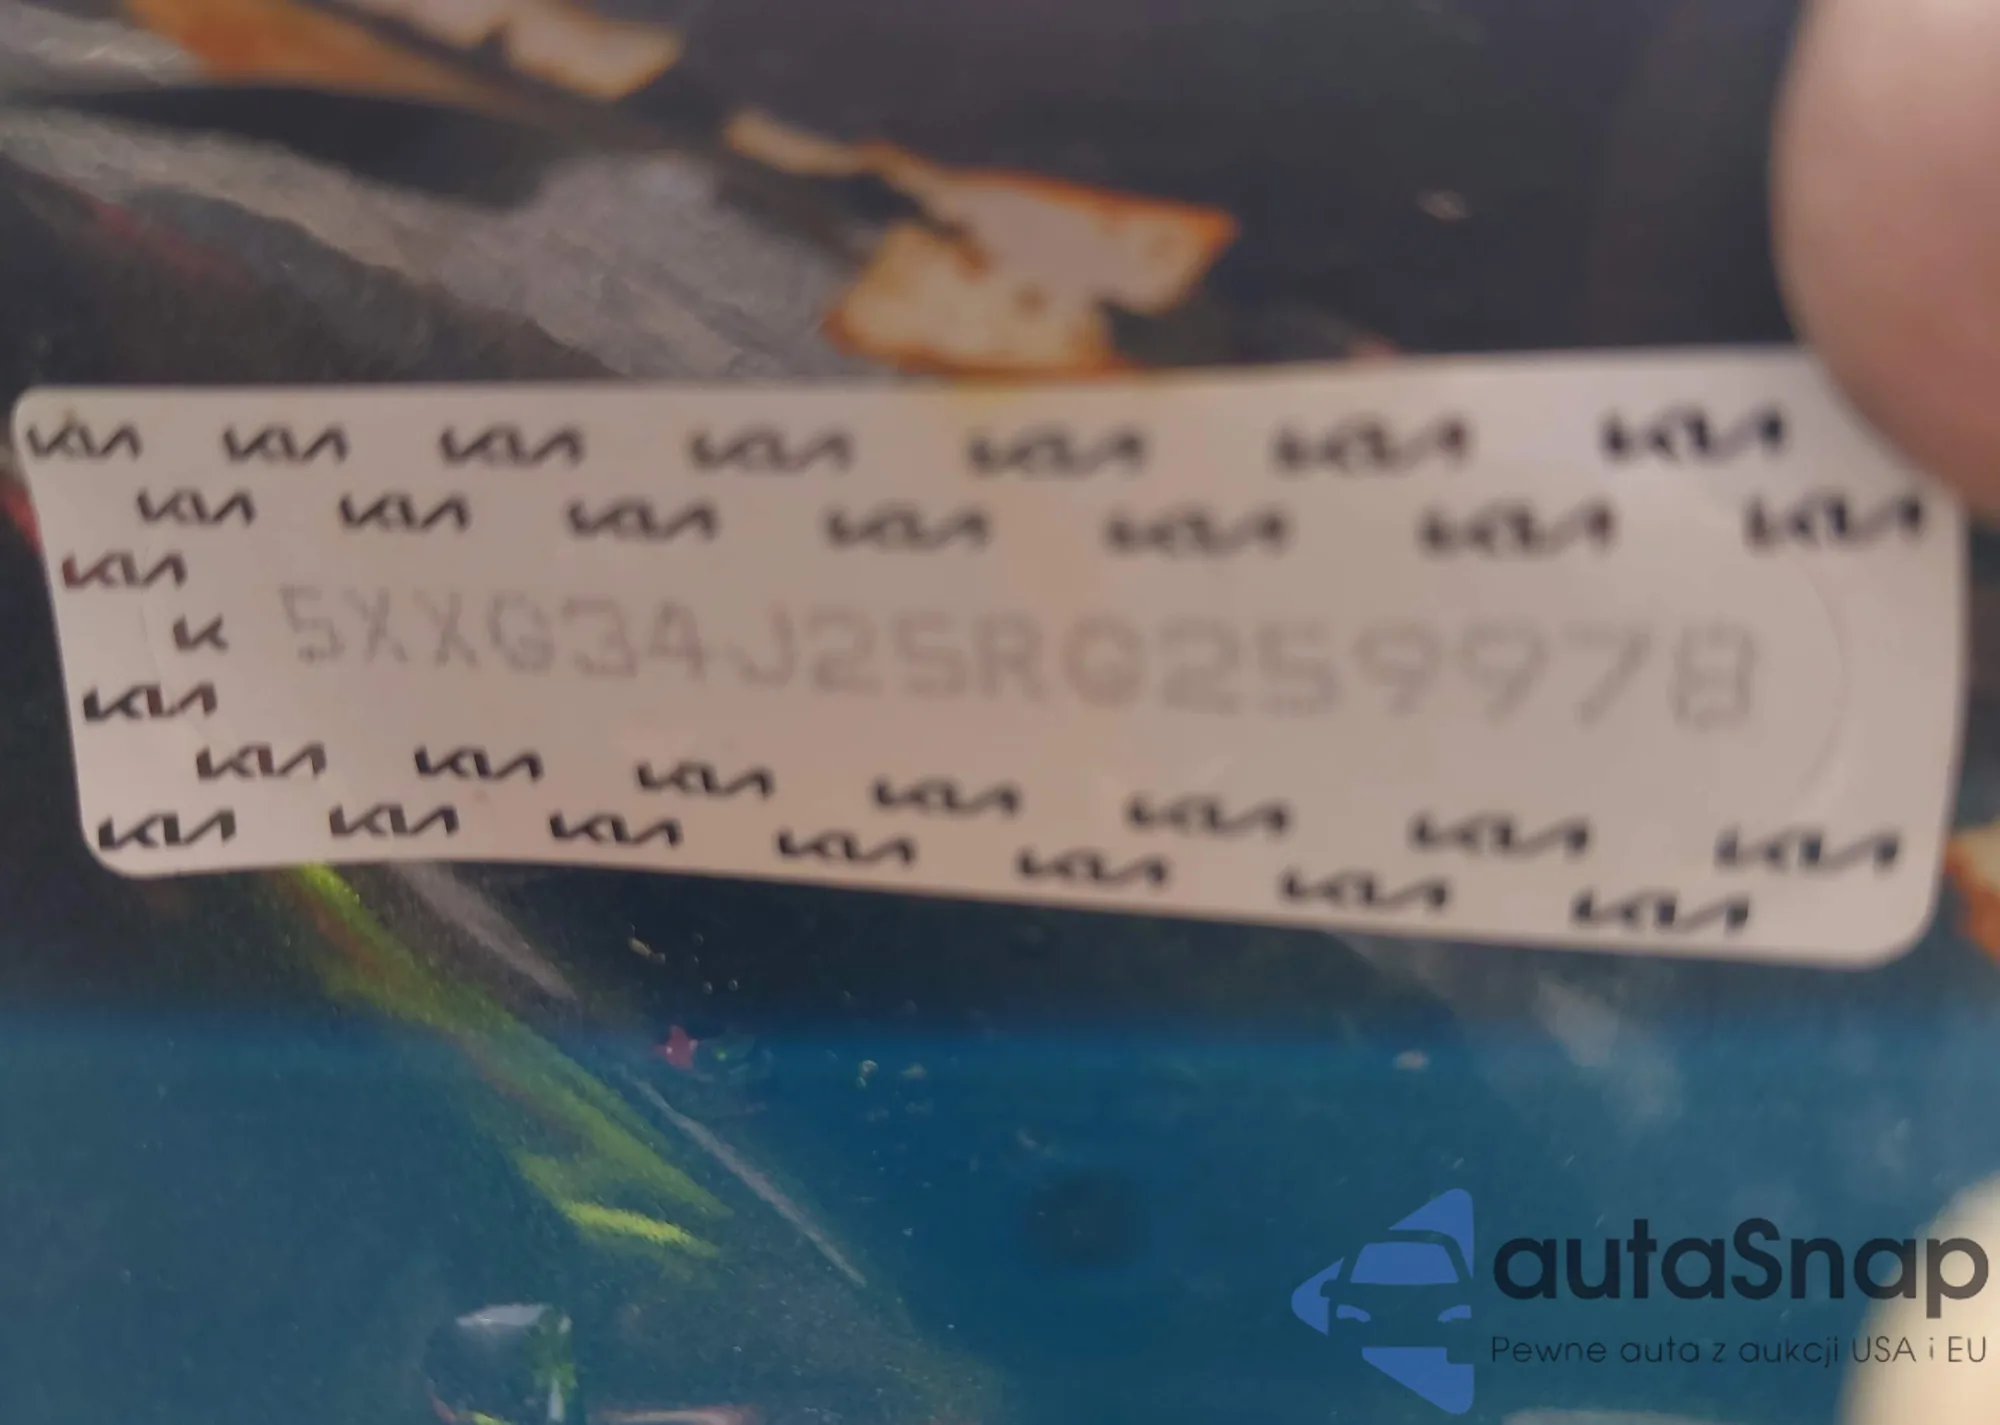 KIA KIA KIA KIA KIA KIA KIA
KIA KIA KIA KIA KIA KIA KIA
KIA
K 5XXG34J25RG259978
KIA
KIA KIA KIA KIA KIA KIA KIA
KIA KIA KIA KIA KIA KIA KIA
autaSnap
Pewne auta z aukcji USA i EU